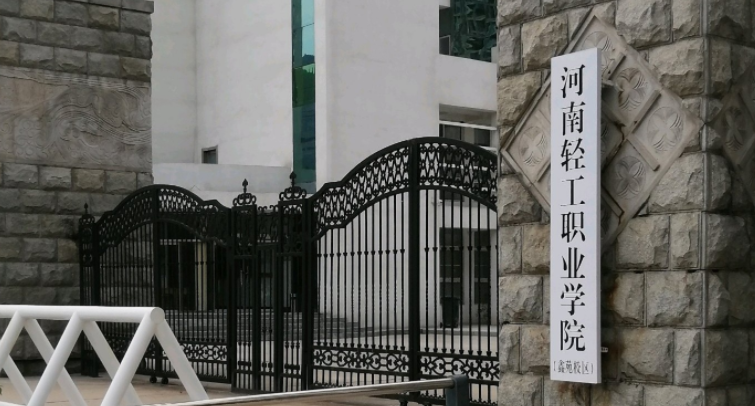 河南轻工职业学院
(鑫苑校区)